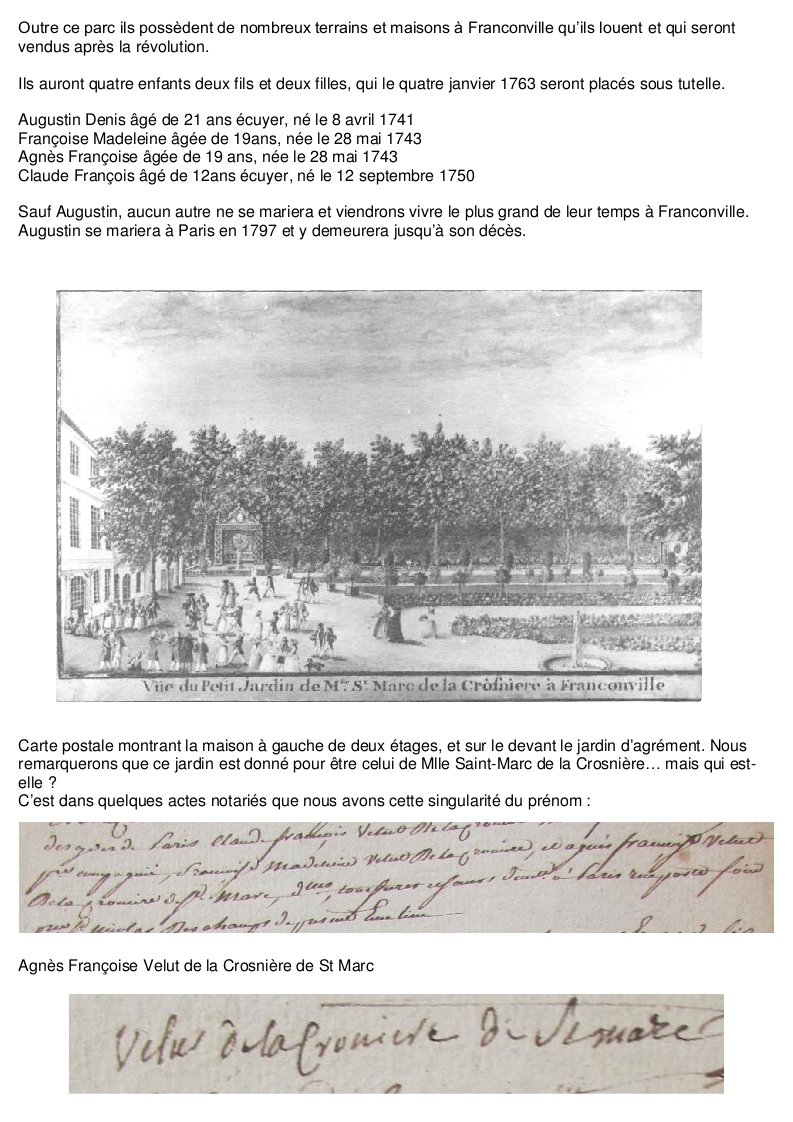 Outre ce parc ils possèdent de nombreux terrains et maisons à Franconville qu'ils louent et qui seront
vendus après la révolution.
Ils auront quatre enfants deux fils et deux filles, qui le quatre janvier 1763 seront placés sous tutelle.
Augustin Denis âgé de 21 ans écuyer, né le 8 avril 1741
Françoise Madeleine âgée de 19ans, née le 28 mai 1743
Agnès Françoise âgée de 19 ans, née le 28 mai 1743
Claude François âgé de 12ans écuyer, né le 12 septembre 1750
Sauf Augustin, aucun autre ne se mariera et viendrons vivre le plus grand de leur temps à Franconville.
Augustin se mariera à Paris en 1797 et y demeurera jusqu'à son décès.
Vüe du Petit Jardin de M.lle S.t Marc de la Cròsniere à Franconville
Carte postale montrant la maison à gauche de deux étages, et sur le devant le jardin d'agrément. Nous
remarquerons que ce jardin est donné pour être celui de Mlle Saint-Marc de la Crosnière… mais qui est-
elle ?
C'est dans quelques actes notariés que nous avons cette singularité du prénom :
de Paris Claude françois Velut De la
Madeleine Velut De la Croniere, et agnès françoise Velut
De la Croniere de St. Marc, enfans à Paris
Nicolas Deschamps
Agnès Françoise Velut de la Crosnière de St Marc
Velut de la Croniere de St marc